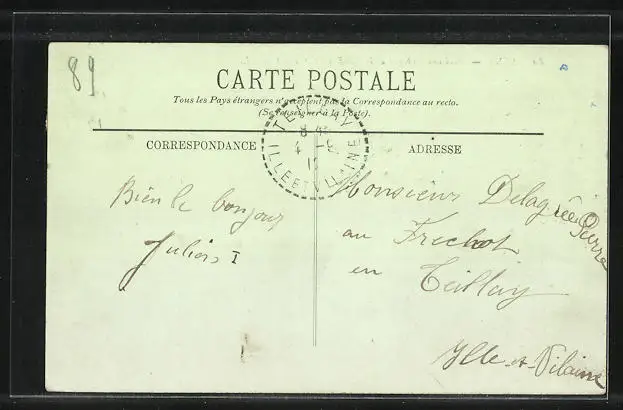 89
CARTE POSTALE
Tous les Pays étrangers n'acceptent pas la Correspondance au recto.
(Se renseigner à la Poste).
CORRESPONDANCE
ADRESSE
8
4
ILLE ET VILAINE
Bien le bonjour
Monsieur Delagrée Pierre
au Frechot
en Teillay
Ille-et-Vilaine